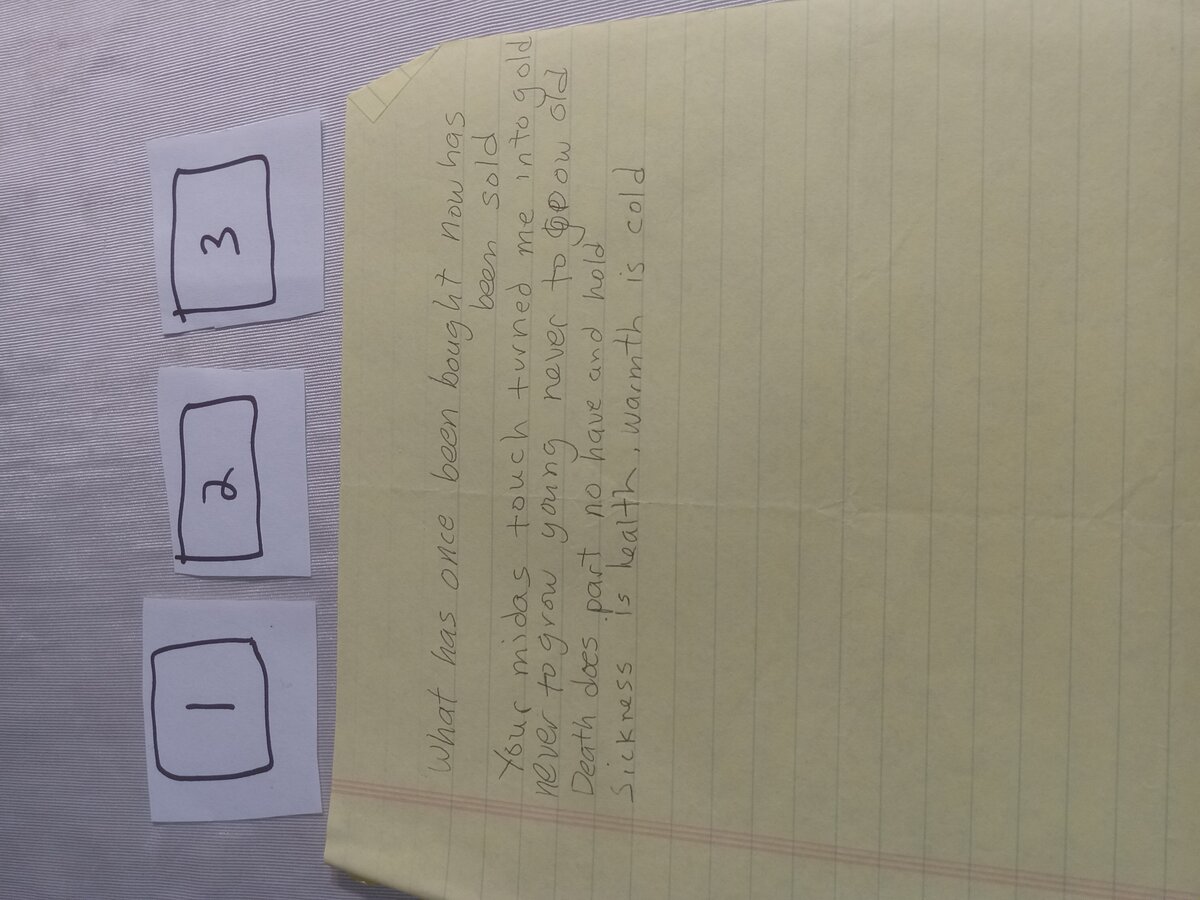 1 2 3
What has once been bought now has
been sold
Your midas touch turned me into gold
never to grow young never to grow old
Death does part no have and hold
Sickness is health, warmth is cold